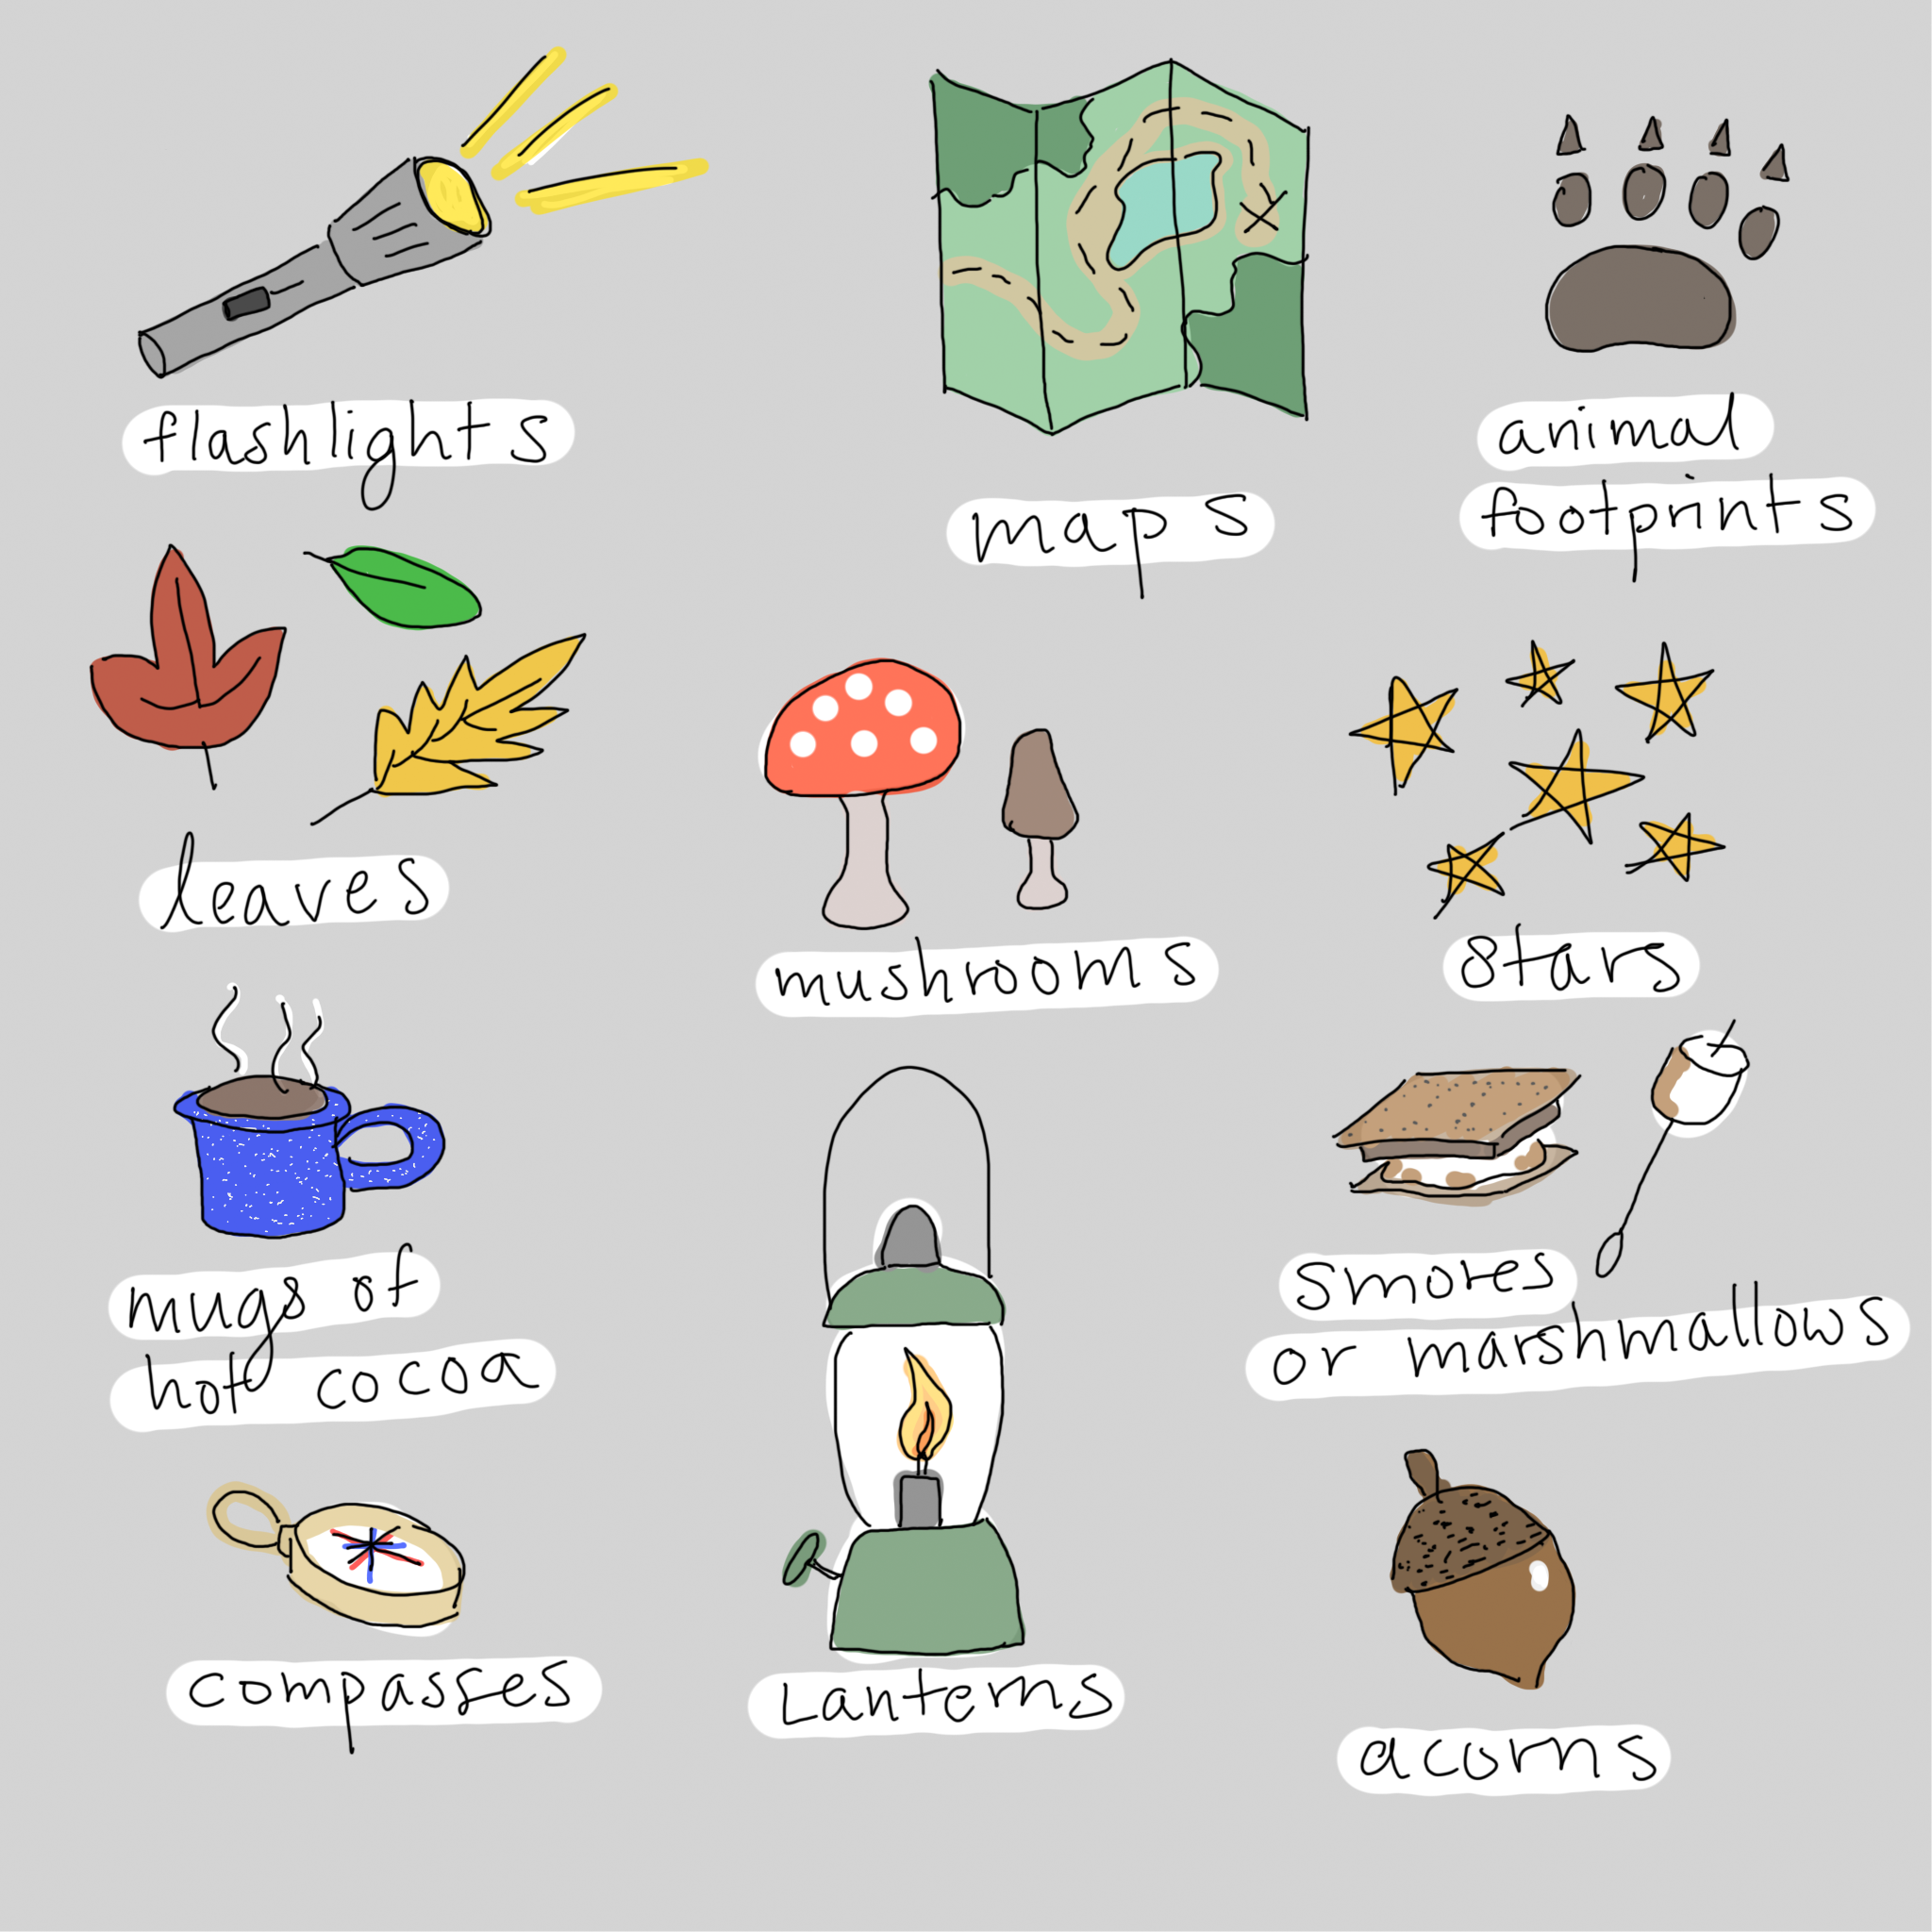 flashlights
maps
animal
footprints
leaves
mushrooms
stars
mugs of
hot cocoa
smores
or marshmallows
compasses
Lanterns
acorns